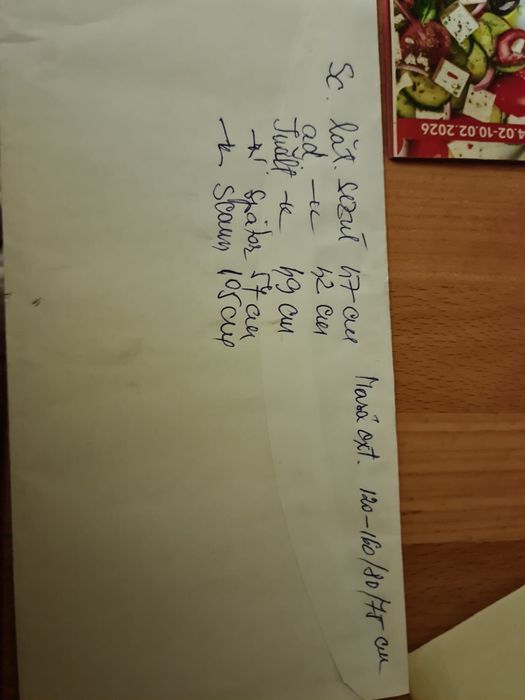 Sc. lăț. șezut 47 cm
ad —"— 42 cm
Înălț —"— 49 cm
—"— Spătar 57 cm
—"— Scaun 105 cm
Masă ext. 120-160/80/75 cm
4.02-10.02.2026